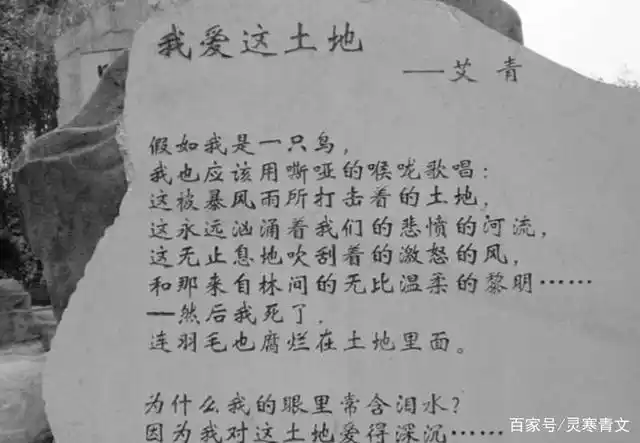 我爱这土地
——艾青
假如我是一只鸟，
我也应该用嘶哑的喉咙歌唱：
这被暴风雨所打击着的土地，
这永远汹涌着我们的悲愤的河流，
这无止息地吹刮着的激怒的风，
和那来自林间的无比温柔的黎明……
—然后我死了，
连羽毛也腐烂在土地里面。
为什么我的眼里常含泪水？
因为我对这土地爱得深沉……
百家号/灵寒青文